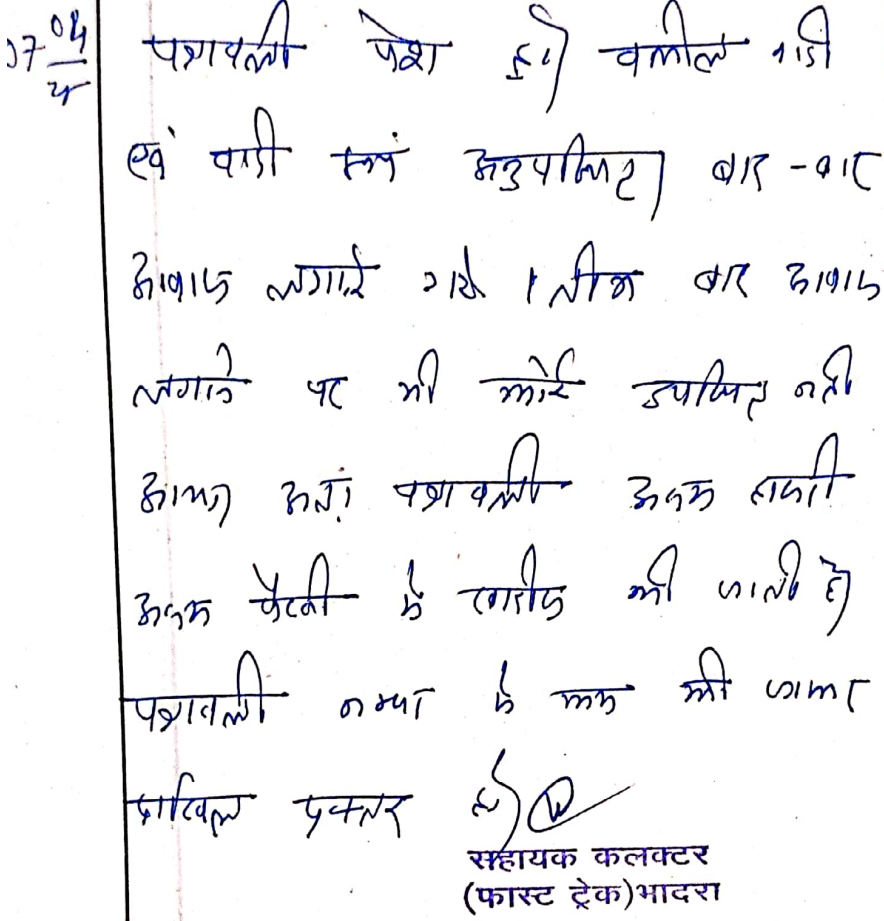 07-04
पत्रावली पेश हुई। वकील वादी
एवं वादी स्वयं अनुपस्थित। बार-बार
आवाज लगाई गयी। तीन बार आवाज
लगाने पर भी कोई उपस्थित नही
आया। अतः पत्रावली अदम हाजरी
अदम पैरवी में खारीज की जाती है।
पत्रावली नम्बर से कम की जाकर
दाखिल दफ्तर हो।
सहायक कलक्टर
(फास्ट ट्रेक)भादरा